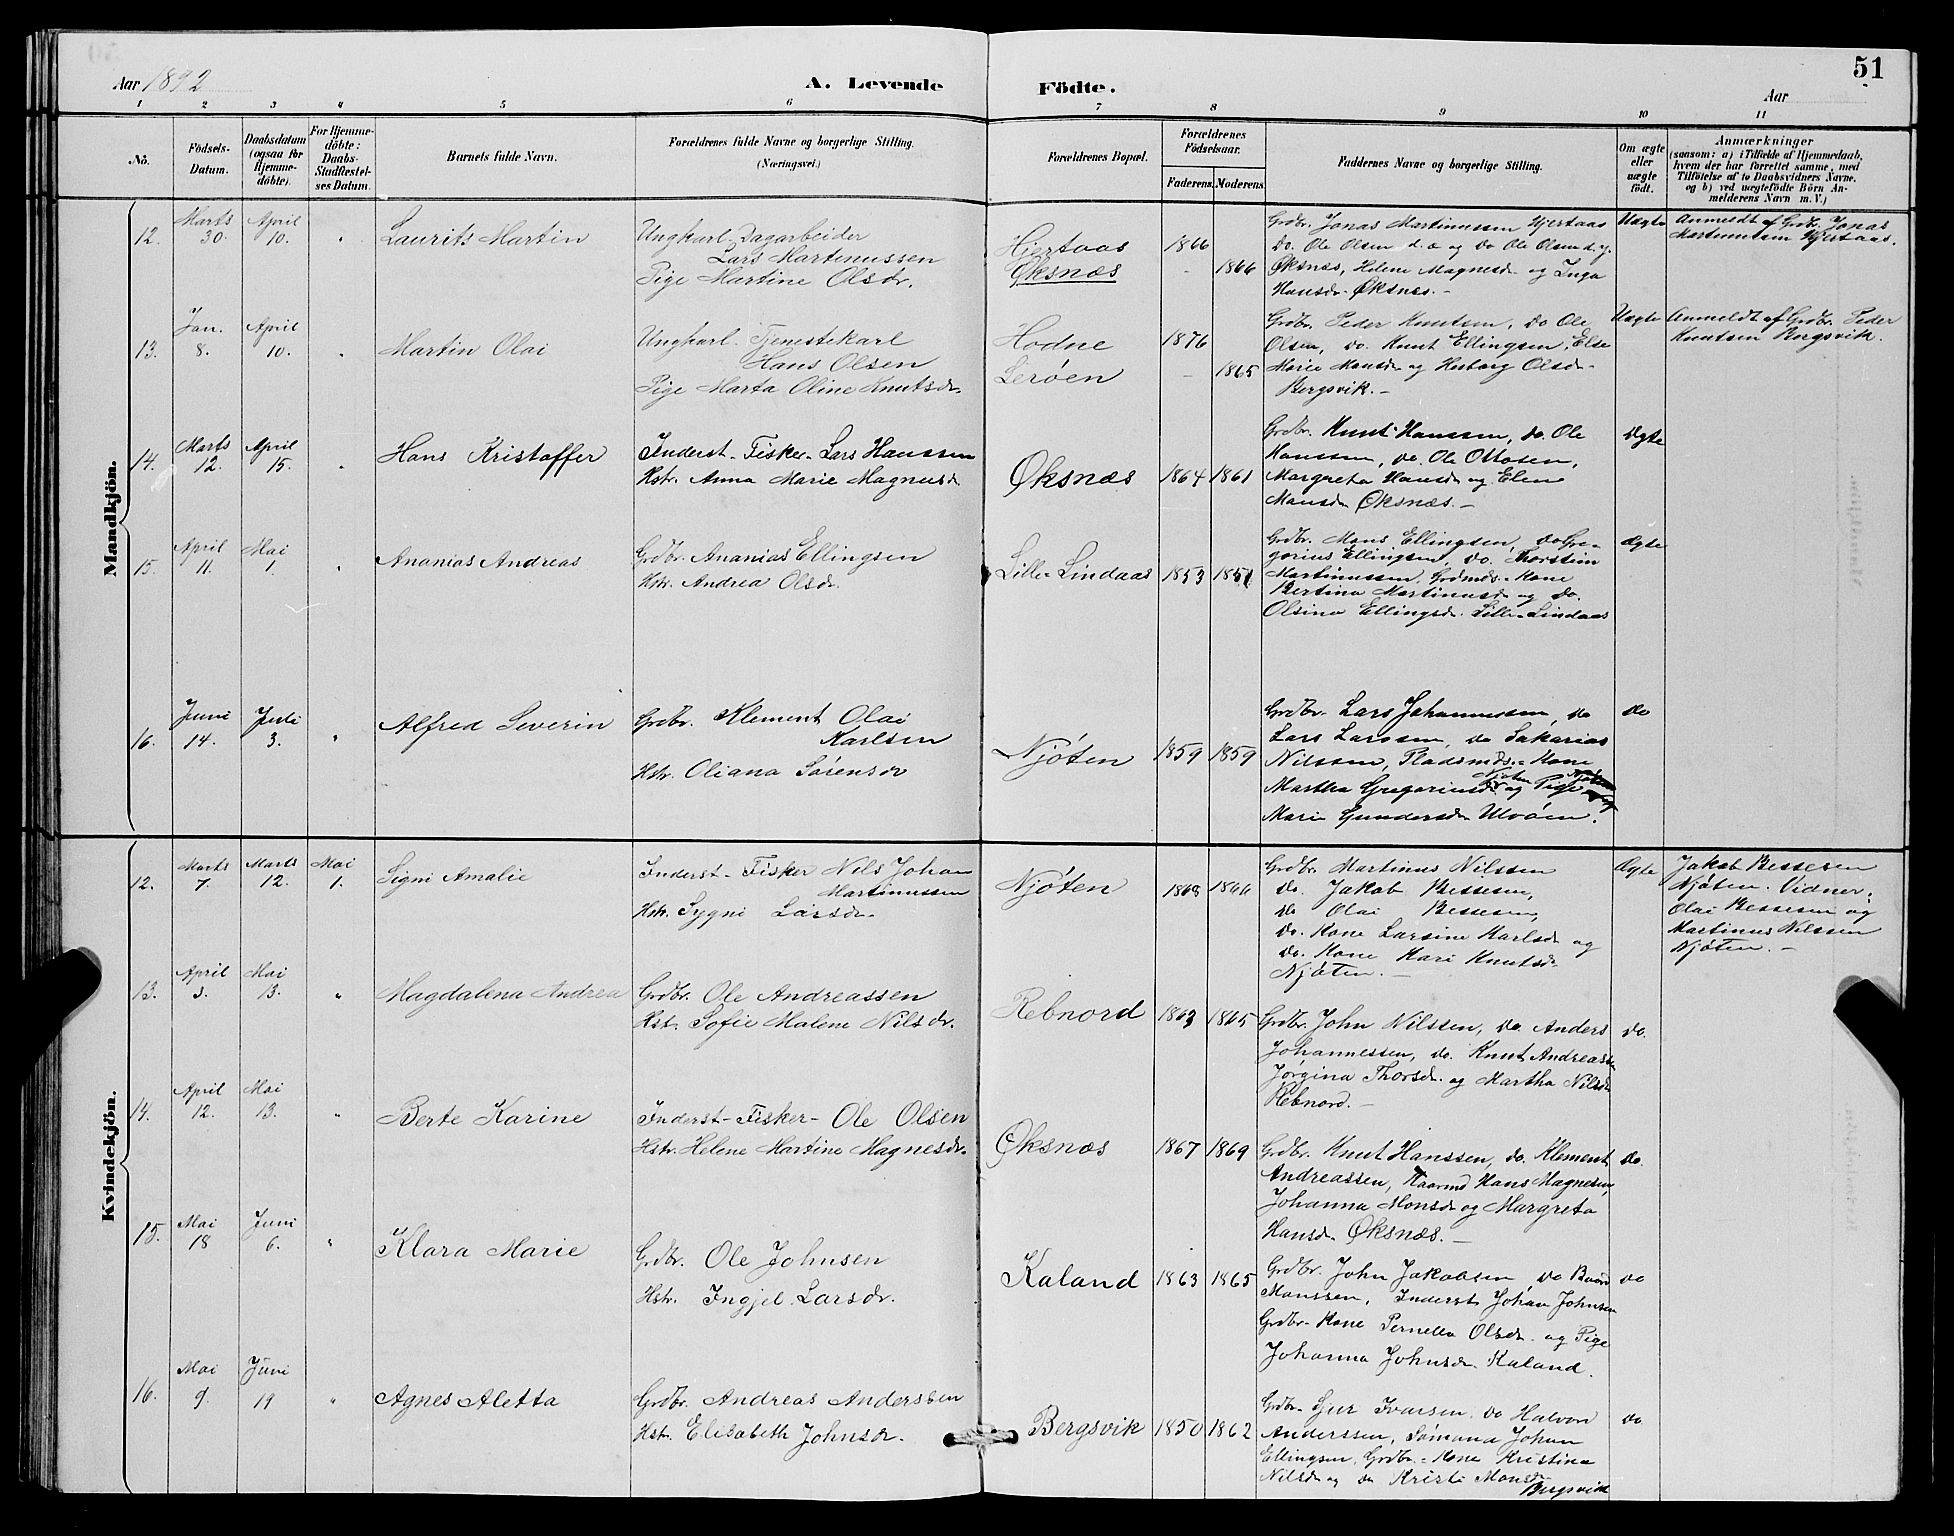 51
Aar 1892
A. Levende
Födte.
Aar
1 2 3 4 5 6 7 8 9 10 11
No.
Födsels-
Datum.
Daabsdatum
(ogsaa for
Hjemme-
döbte).
For Hjemme-
döbte:
Daabs-
Stadfæstel-
ses Datum.
Barnets fulde Navn.
Forældrenes fulde Navne og borgerlige Stilling.
(Næringsvei.)
Forældrenes Bopæl.
Forældrenes
Födselsaar.
Faderens. Moderens.
Faddernes Navne og borgerlige Stilling.
Om ægte
eller
uægte
födt.
Anmærkninger
(saasom: a) i Tilfælde af Hjemmedaab,
hvem der har forrettet samme, med
Tilföielse af to Daabsvidners Navne.
og b) ved uægtefödte Börn An-
melderens Navn m. V.)
Mandkjön.
12.
Marts
30.
April
10.
"
Laurits Martin
Ungkarl Dagarbeider
Lars Martinussen
Pige Martine Olsdr.
Hjertaas
Øksnæs
1866
- 1866
Grdbr. Jonas Martinussen Hjertaas
do. Ole Olsen d.æ. og do Ole Olsen d.y.
Øksnæs, Helene Magnesdr og Inga
Hansdr. Øksnæs. -
Uægte
Anmeldt af Grdbr. Jonas
Martinussen Hjertaas.
13.
Jan.
8.
April
10.
"
Martin Olai
Ungkarl. Tjenestekarl
Hans Olsen
Pige Marta Oline Knutsdr.
Hodne
Lerøen
1876
- 1865
Grdbr. Peder Knutsen, do Ole
Olsen, do. Knut Ellingsen, Else
Marie Monsdr og Herborg Olsdr.
Bergsvik. -
Uægte
Anmeldt af Grdbr. Peder
Knutsen Bergsvik.
14.
Marts
12.
April
15.
"
Hans Kristoffer
Inderst - Fisker - Lars Hanssen
Hstr. Anna Marie Magnusdr
Øksnæs
1864 1861
Grdbr. Knut Hanssen, do. Ole
Hanssen, do. Ole Ottosen,
Margreta Hansdr og Elene
Monsdr Øksnæs. -
Ægte
15.
April
11.
Mai
1.
"
Ananias Andreas
Grdbr. Ananias Ellingsen
Hstr. Andrea Olsdr.
Lille-Lindaas
1853 1851
Grdbr. Mons Ellingsen, do Gre-
gorius Ellingsen, do. Thorstein
Martinussen, Grdmds. Kone
Bertina Martinusdr og do.
Olsina Ellingsdr. Lille-Lindaas
ægte
16.
Juni
14.
Juli
3.
"
Alfred Severin
Grdbr. Klement Olai
Karlsen
Hstr. Oliana Sørensdr
Njøten
1859 1859
Grdbr. Lars Johannessen, do
Lars Larssen, do Sakarias
Nilssen, Pladsmds. Kone
Martha Gregoriusdr Njøten og Pige
Marie Gundersdr Ulvøen.
do
Kvindekjön.
12.
Marts
7.
Marts
12.
Mai
1.
Signi Amalie
Inderst - Fisker Nils Johan
Martinussen
Hstr. Sygni Larsdr.
Njøten
1868 1866
Grdbr. Martinus Nilssen
do. Jakob Bessesen,
do Olai Bessesen,
do. Kone Larsine Karlsdr og
do. Kone Kari Knutsdr.
Njøten. -
Ægte
Jakob Bessesen
Njøten. Vidner:
Olai Bessesen og
Martinus Nilssen
Njøten. -
13.
April
3.
Mai
13.
"
Magdalena Andrea
Grdbr. Ole Andreassen
Hst. Sofie Malene Nilsdr.
Rebnord
1863 1865
Grdbr. John Nilssen, do. Anders
Johannessen, do. Knut Andreassen
Jørgina Thorsdr. og Martha Nilsdr
Rebnord. -
do.
14.
April
12.
Mai
13.
"
Berte Karine
Inderst - Fisker - Ole Olsen
Hstr. Helene Martine Magnesdr.
Øksnæs
1867 1869
Grdbr. Knut Hanssen, do. Klement
Andreassen, Kaarmd Hans Magnesen,
Johanna Monsdr og Margreta
Hansdr Øksnæs. -
do.
15.
Mai
18
Juni
6.
"
Klara Marie
Grdbr. Ole Johnsen
Hstr. Ingjel. Larsdr.
Kaland
1863 1865
Grdbr. John Jakobsen, do Baard
Monssen, Inderst Johan Johnsen
Grdbr. Kone Pernella Olsdr. og Pige
Johanna Johnsdr Kaland.
do
16.
Mai
9.
Juni
19
"
Agnes Aletta
Grdbr. Andreas Anderssen
Hst. Elisabeth Johnsdr.
Bergsvik
1850 1862
Grdbr. Sjur Ivarsen, do Halvor
Anderssen, Sømand Johan
Ellingsen, Grdbr. Kone Kristina
Nilsdr og do Kristi Monsdr.
Bergsvik
do